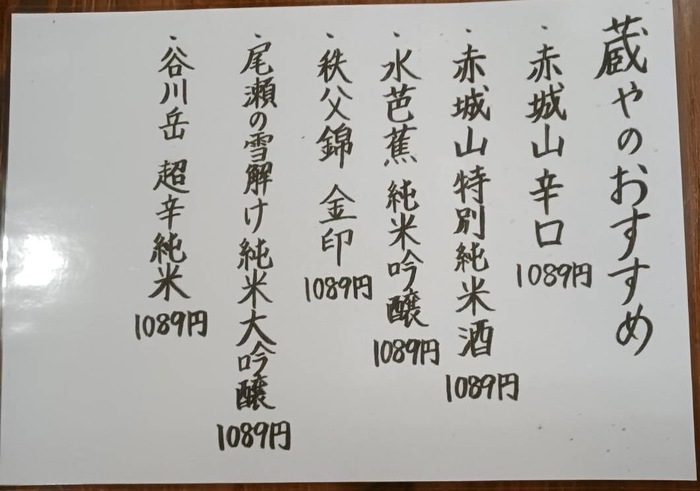 蔵やのおすすめ
・赤城山辛口
1089円
・赤城山特別純米酒
1089円
・水芭蕉 純米吟醸
1089円
・秩父錦 金印
1089円
・尾瀬の雪解け純米大吟醸
1089円
・谷川岳 超辛純米
1089円